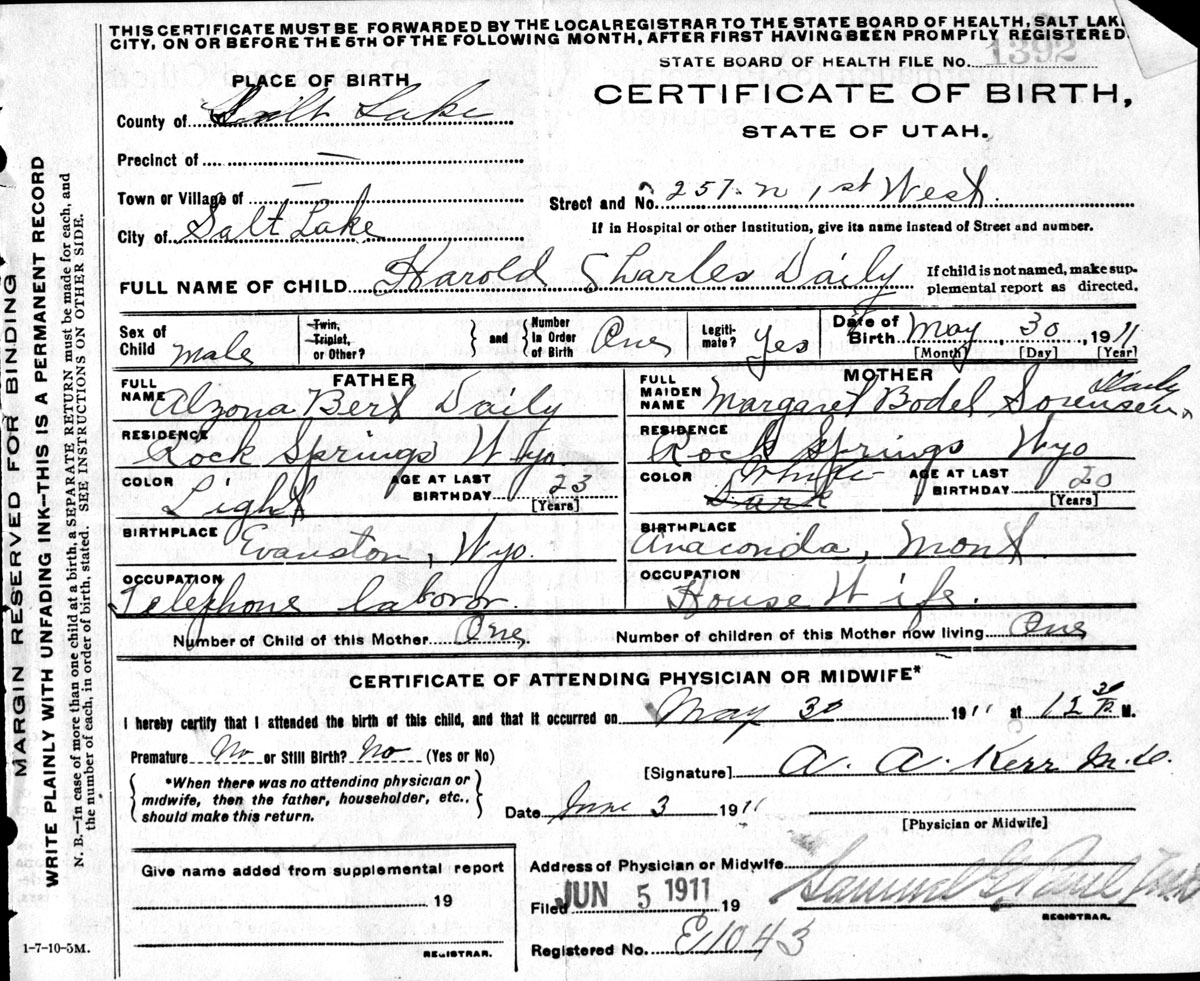 THIS CERTIFICATE MUST BE FORWARDED BY THE LOCAL REGISTRAR TO THE STATE BOARD OF HEALTH, SALT LAK
CITY, ON OR BEFORE THE 5TH OF THE FOLLOWING MONTH, AFTER FIRST HAVING BEEN PROMPTLY REGISTERED.
STATE BOARD OF HEALTH FILE No. 1392
PLACE OF BIRTH
CERTIFICATE OF BIRTH,
STATE OF UTAH.
County of Salt Lake
Precinct of —
Town or Village of —
Street and No. 257 N 1st West
City of Salt Lake
If in Hospital or other Institution, give its name instead of Street and number.
FULL NAME OF CHILD Harold Charles Daily
If child is not named, make sup-
plemental report as directed.
Sex of Child male
Twin, Triplet, or Other?
and
Number in Order of Birth One
Legiti-mate? Yes
Date of Birth May 30, 1911
[Month] [Day] [Year]
FATHER
FULL NAME Alzona Bert Daily
RESIDENCE Rock Springs Wyo
COLOR Light
AGE AT LAST BIRTHDAY 23 [Years]
BIRTHPLACE Evanston, Wyo.
OCCUPATION Telephone labor.
MOTHER
FULL MAIDEN NAME Margaret Bodel Sorensen Daily
RESIDENCE Rock Springs Wyo
COLOR White Dark
AGE AT LAST BIRTHDAY 20 [Years]
BIRTHPLACE Anaconda, Mont.
OCCUPATION House Wife.
Number of Child of this Mother One
Number of children of this Mother now living One
CERTIFICATE OF ATTENDING PHYSICIAN OR MIDWIFE*
I hereby certify that I attended the birth of this child, and that it occurred on May 30 1911 at 12 M.
Premature No or Still Birth? No (Yes or No)
*When there was no attending physician or
midwife, then the father, householder, etc.,
should make this return.
[Signature] A. A. Kerr M.D.
Date June 3 1911
[Physician or Midwife]
Give name added from supplemental report
19
REGISTRAR.
Address of Physician or Midwife
Filed JUN 5 1911 19
Samuel G. Paul
REGISTRAR.
Registered No. E1043
1-7-10-5M.
MARGIN RESERVED FOR BINDING
WRITE PLAINLY WITH UNFADING INK—THIS IS A PERMANENT RECORD
N. B.—In case of more than one child at a birth, a SEPARATE RETURN must be made for each, and
the number of each, in order of birth, stated. SEE INSTRUCTIONS ON OTHER SIDE.